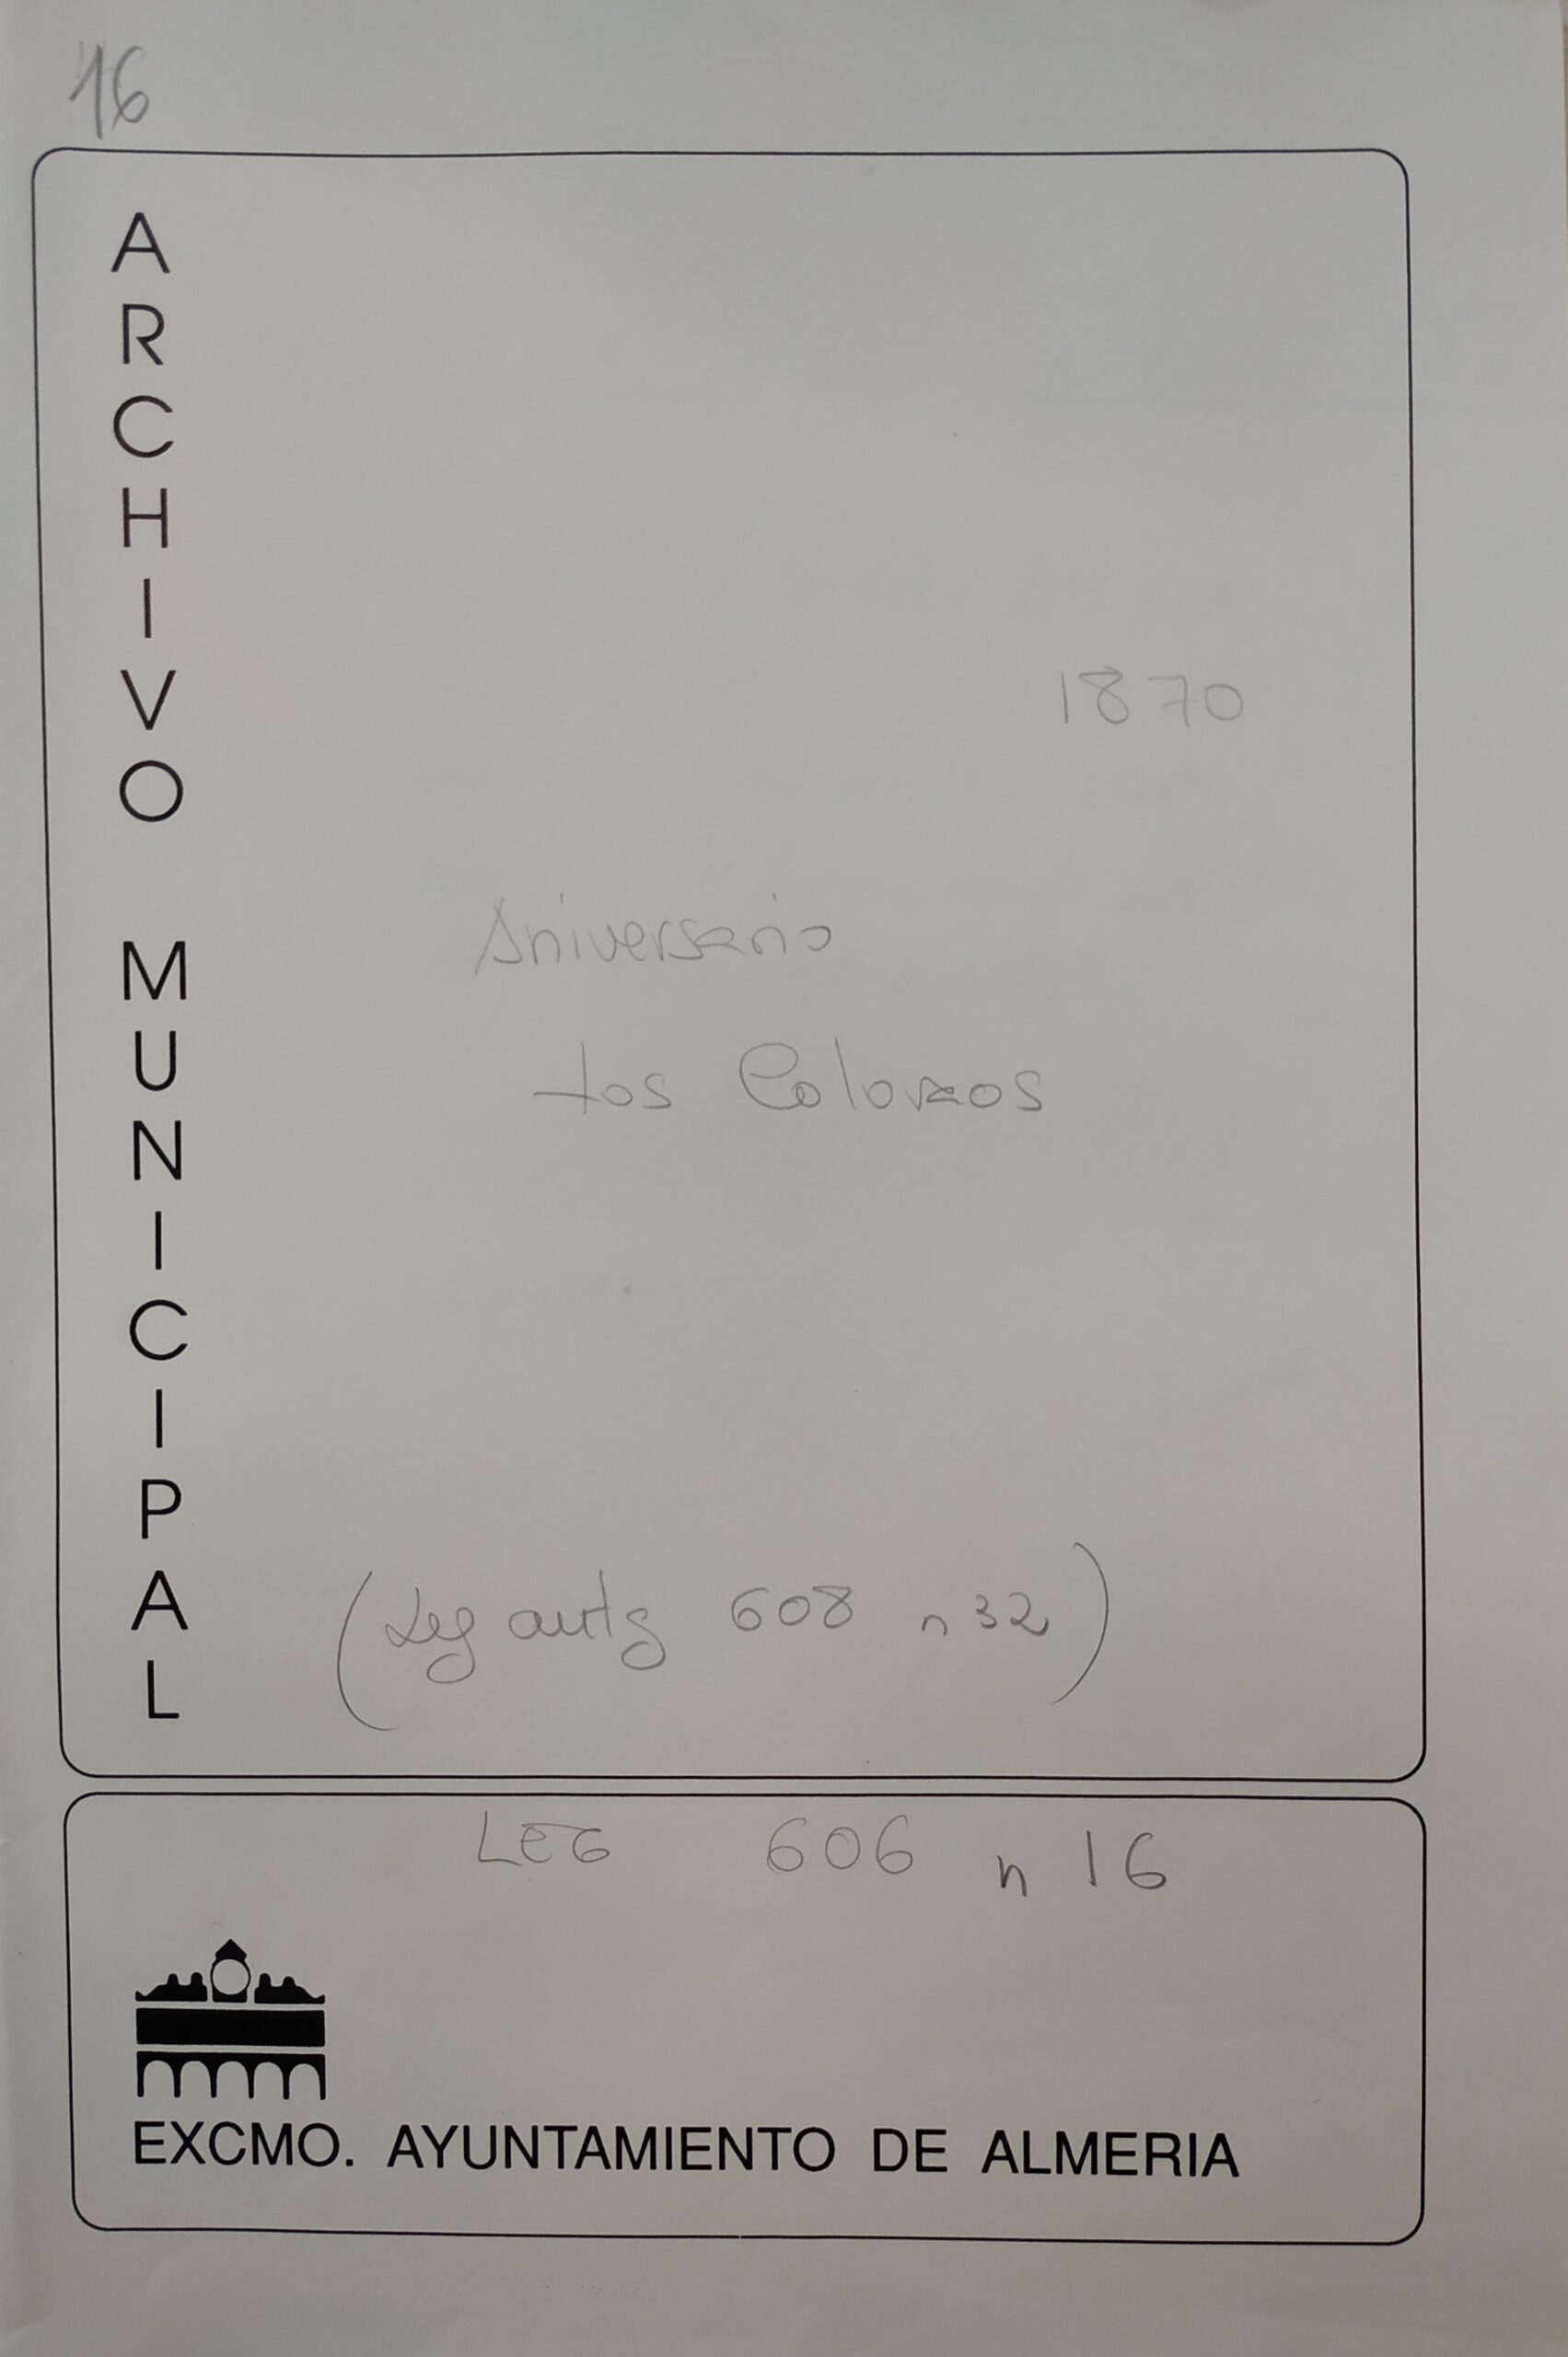 16
ARCHIVO MUNICIPAL
1870
Aniversario
Los Coloraos
(Leg antg 608 n 32)
LEG 606 n 16
EXCMO. AYUNTAMIENTO DE ALMERIA